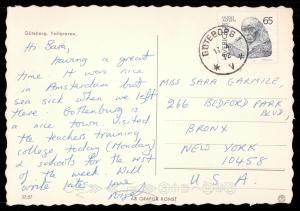 Göteborg. Feskgräven.
Hi Sara,
Having a great
time. It was nice
in Amsterdam but
sea sick when we left
there. Gottenburg is
a nice town. Visited
the teachers training
college today (Monday)
& schools for the rest
of the week. Will
write later love
65
GÖTEBORG
MISS SARA GARMIZE,
266 BEDFORD PARK
BLVD,
BRONX
NEW YORK
10458
U.S.A.
AB GRAFISK KONST